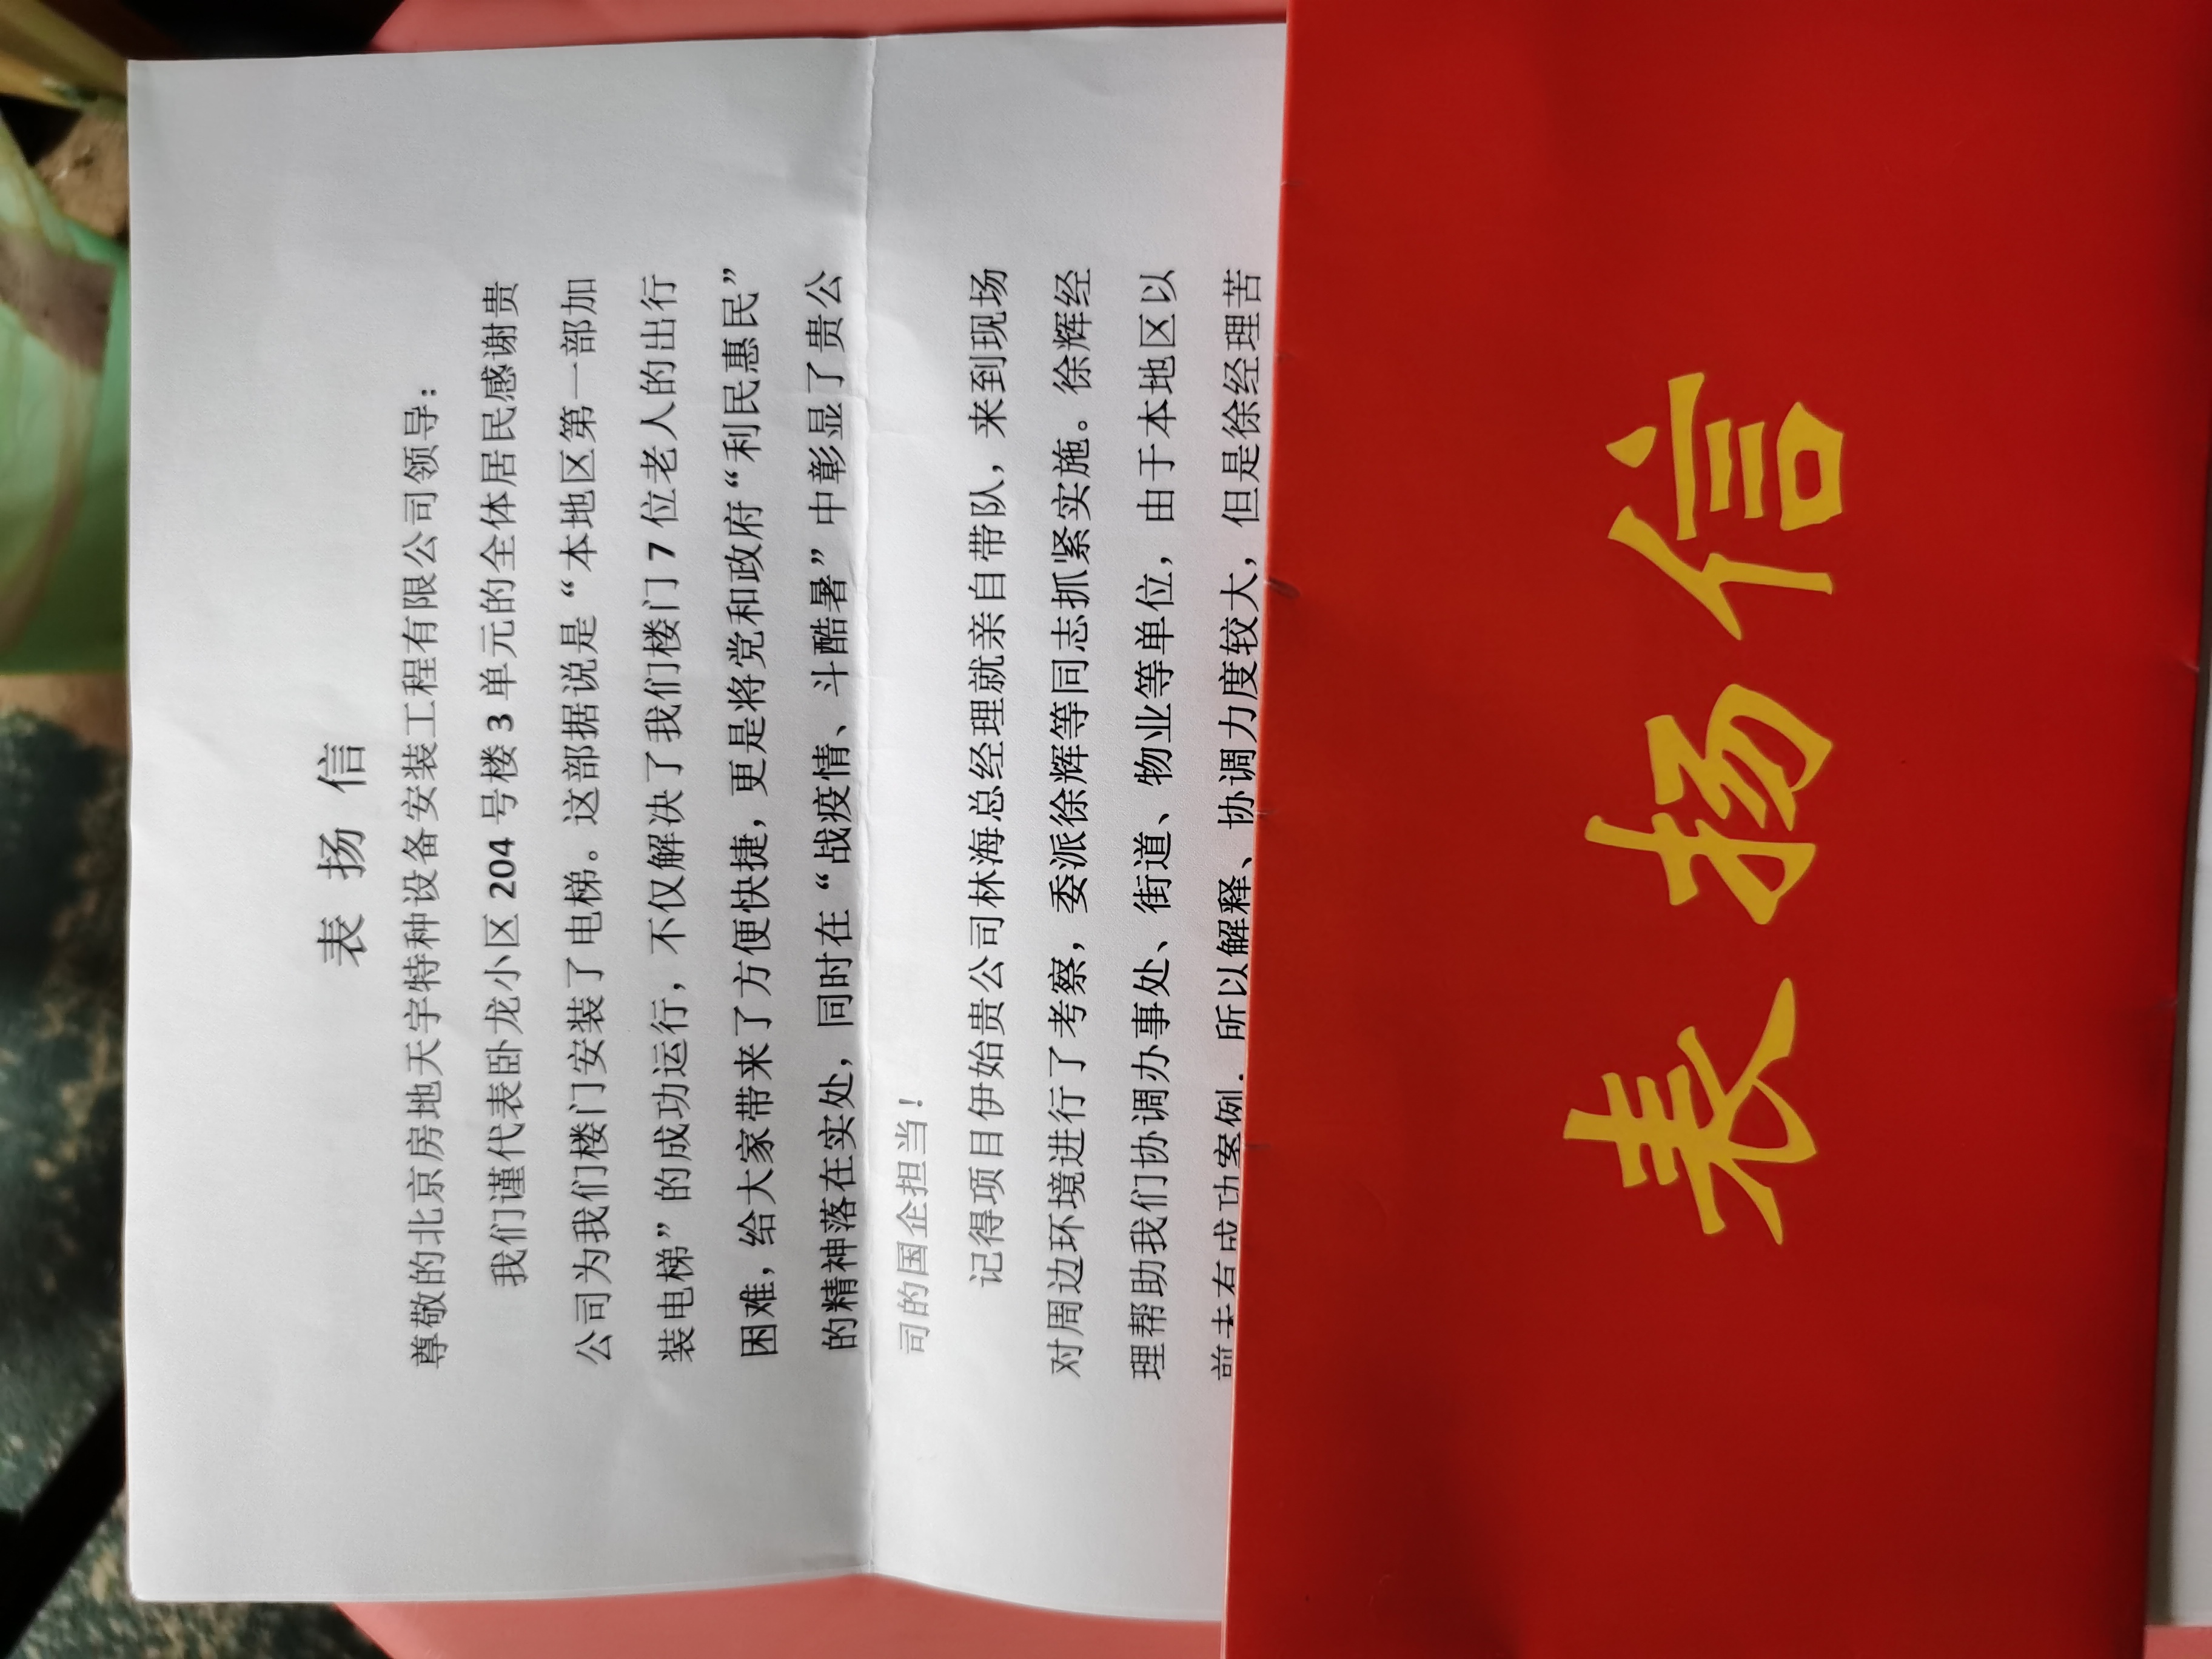 表扬信
尊敬的北京房地天宇特种设备安装工程有限公司领导：
我们谨代表卧龙小区 204 号楼 3 单元的全体居民感谢贵
公司为我们楼门安装了电梯。这部据说是“本地区第一部加
装电梯”的成功运行，不仅解决了我们楼门 7 位老人的出行
困难，给大家带来了方便快捷，更是将党和政府“利民惠民”
的精神落在实处，同时在“战疫情、斗酷暑”中彰显了贵公
司的国企担当！
记得项目伊始贵公司林海总经理就亲自带队，来到现场
对周边环境进行了考察，委派徐辉等同志抓紧实施。徐辉经
理帮助我们协调办事处、街道、物业等单位，由于本地区以
前未有成功案例，所以解释、协调力度较大，但是徐经理苦
表扬信